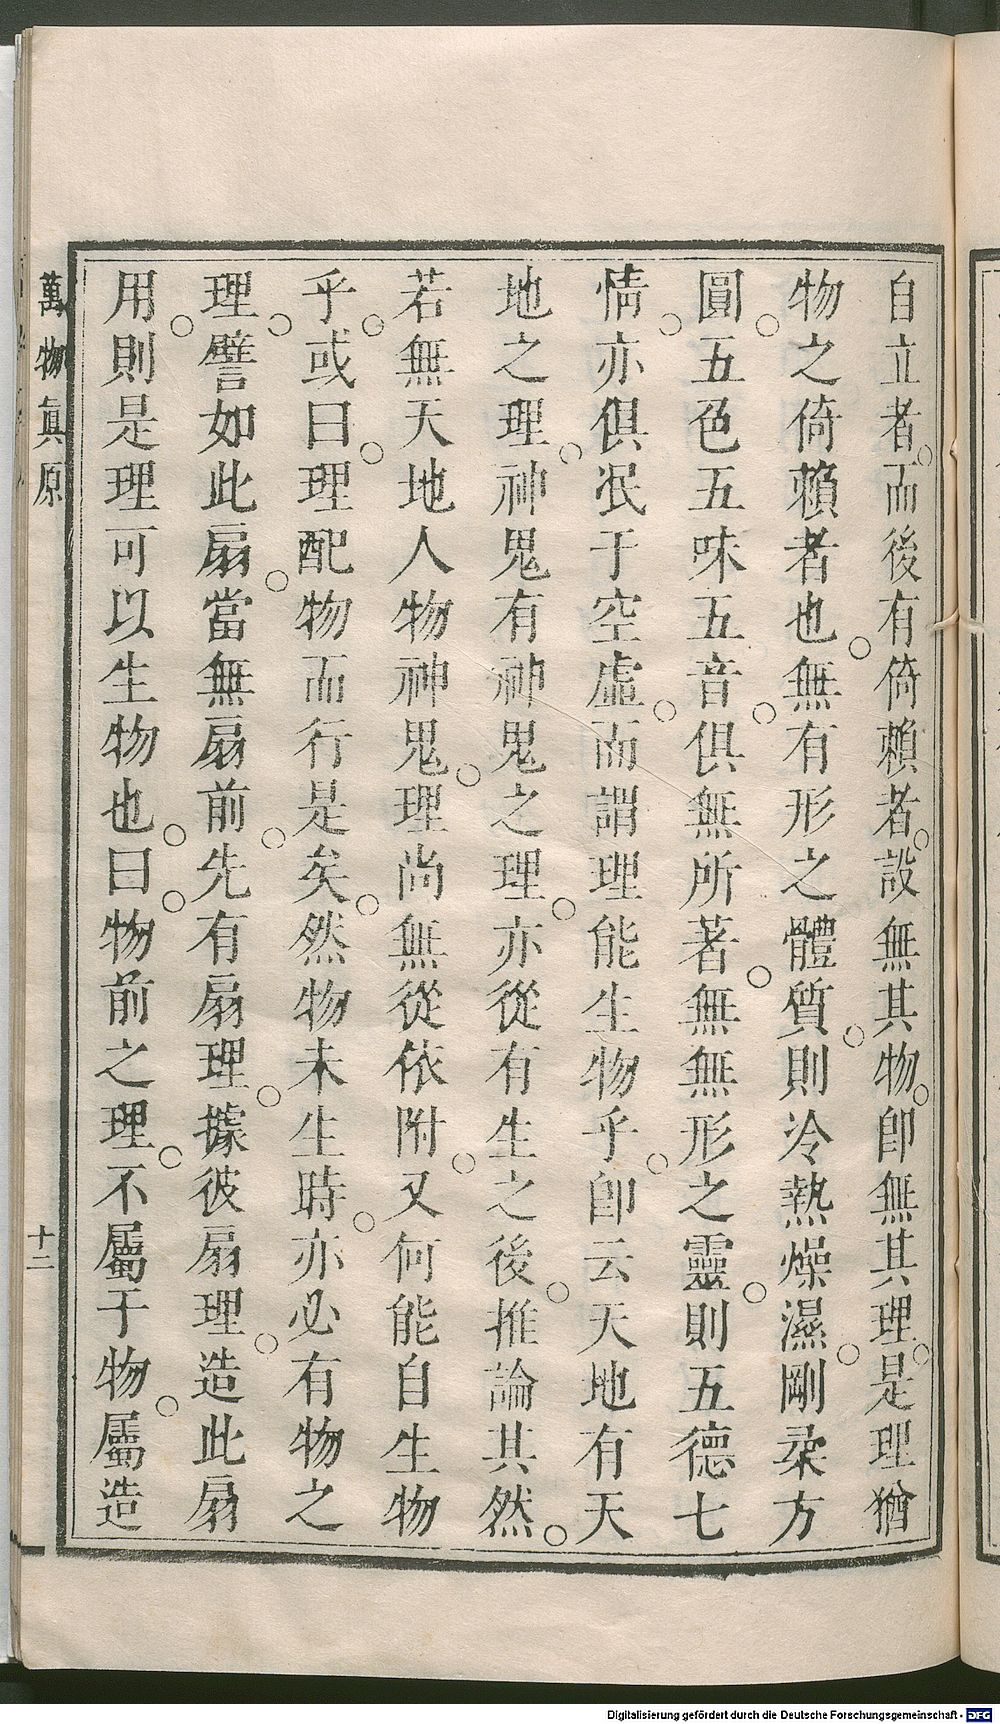 自立者。而後有倚賴者。設無其物。卽無其理。是理猶
物之倚賴者也。無有形之體質。則冷熱燥濕。剛柔方
圓。五色五味五音。俱無所著。無無形之靈。則五德七
情。亦俱泯于空虛。而謂理能生物乎。卽云天地有天
地之理。神鬼有神鬼之理。亦從有生之後。推論其然。
若無天地人物神鬼。理尚無從依附。又何能自生物
乎。或曰。理配物而行是矣。然物未生時。亦必有物之
理。譬如此扇。當無扇前。先有扇理。據彼扇理。造此扇
用。則是理可以生物也。曰。物前之理。不屬于物。屬造
萬物眞原
十二
Digitalisierung gefördert durch die Deutsche Forschungsgemeinschaft - DFG